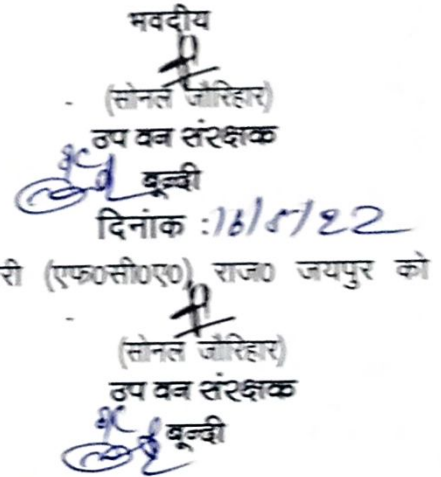 भवदीय
(सोनल जौरिहार)
उप वन संरक्षक
बून्दी
दिनांक :16/5/22
री (एफ0सी0ए0), राज0 जयपुर को
(सोनल जौरिहार)
उप वन संरक्षक
बून्दी